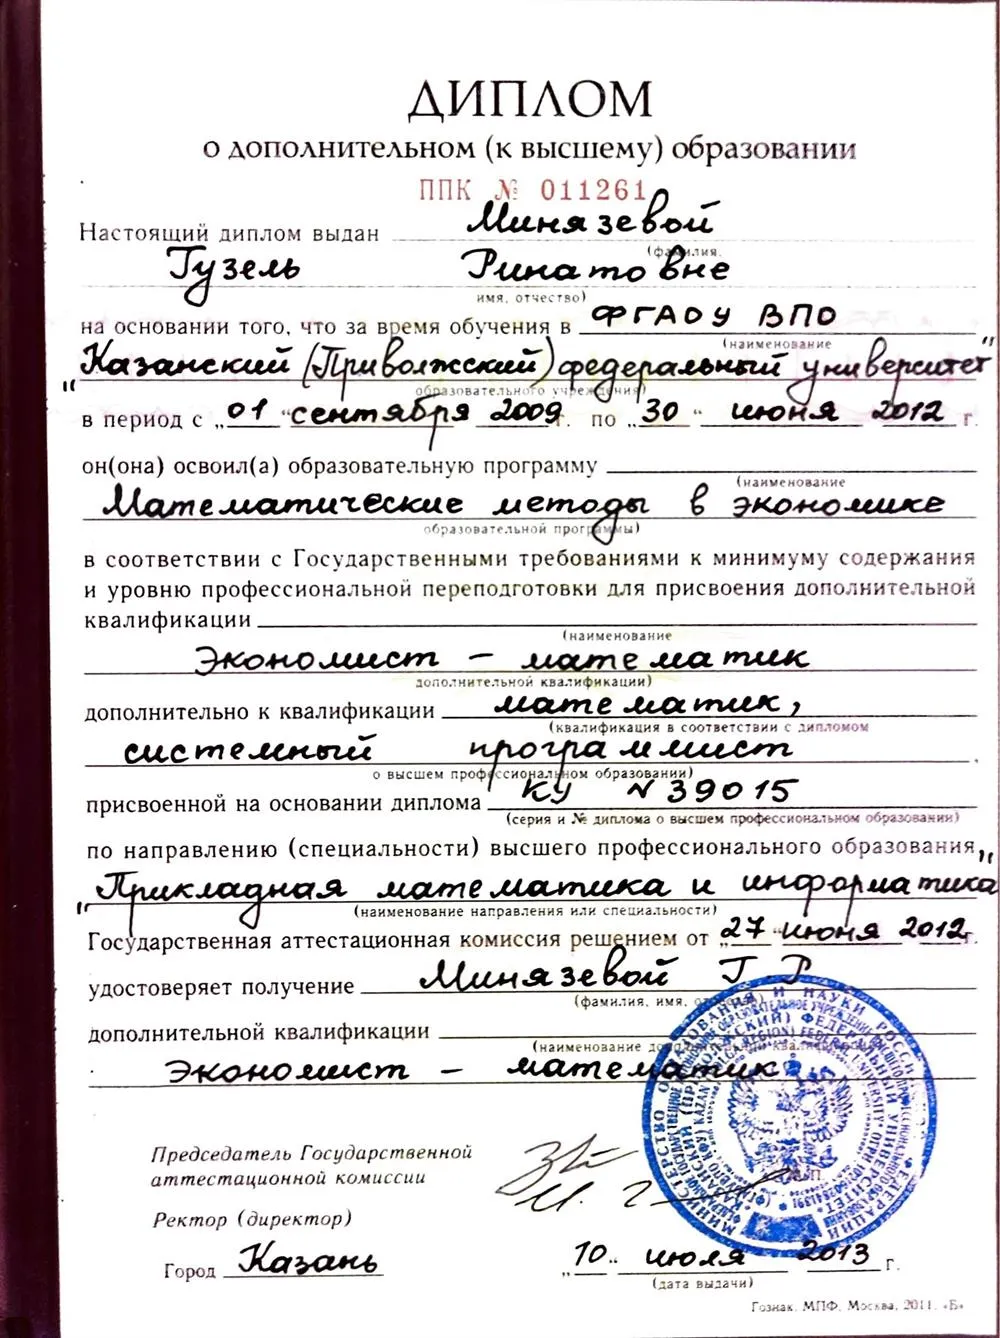 ДИПЛОМ
о дополнительном (к высшему) образовании
ППК № 011261
Настоящий диплом выдан Минязевой
(фамилия,
Гузель Ринатовне
имя, отчество)
на основании того, что за время обучения в ФГАОУ ВПО
(наименование
"Казанский (Приволжский) федеральный университет"
образовательного учреждения)
в период с „01 " сентября 2009 г. по „30 " июня 2012 г.
он(она) освоил(а) образовательную программу
(наименование
Математические методы в экономике
образовательной программы)
в соответствии с Государственными требованиями к минимуму содержания
и уровню профессиональной переподготовки для присвоения дополнительной
квалификации
(наименование
Экономист – математик
дополнительной квалификации)
дополнительно к квалификации математик,
(квалификация в соответствии с дипломом
системный программист
о высшем профессиональном образовании)
присвоенной на основании диплома КУ N 39015
(серия и № диплома о высшем профессиональном образовании)
по направлению (специальности) высшего профессионального образования
"Прикладная математика и информатика"
(наименование направления или специальности)
Государственная аттестационная комиссия решением от „27 " июня 2012 г.
удостоверяет получение Минязевой Г Р
(фамилия, имя,
дополнительной квалификации
(наименование
Экономист – математик
Председатель Государственной
аттестационной комиссии
Ректор (директор)
Город Казань „10 " июля 2013 г.
(дата выдачи)
Гознак. МПФ. Москва. 2011. «Б»